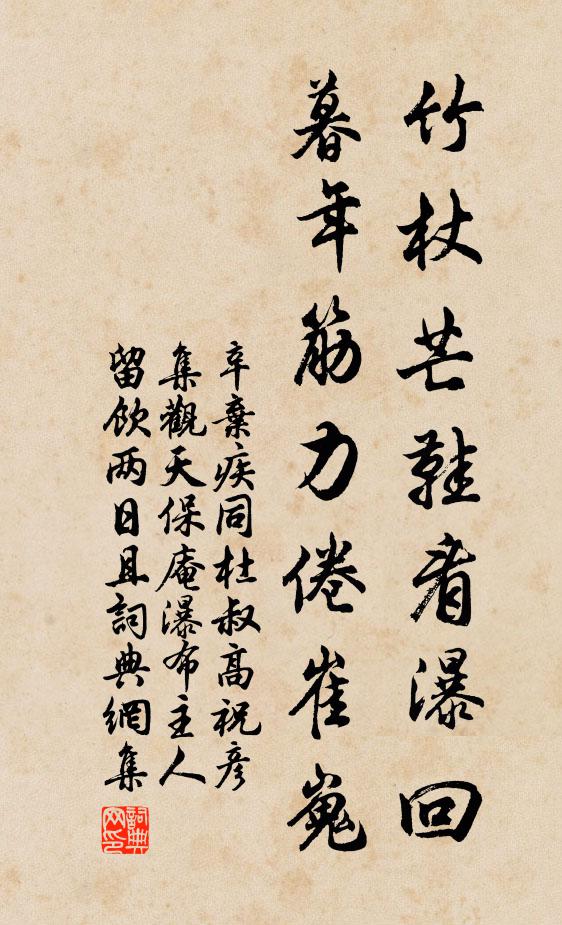 竹杖芒鞋看瀑回
暮年筋力倦崔嵬
辛棄疾同杜叔高祝彦
集觀天保庵瀑布主人
留飲两日且詞典網集
詞典
网印